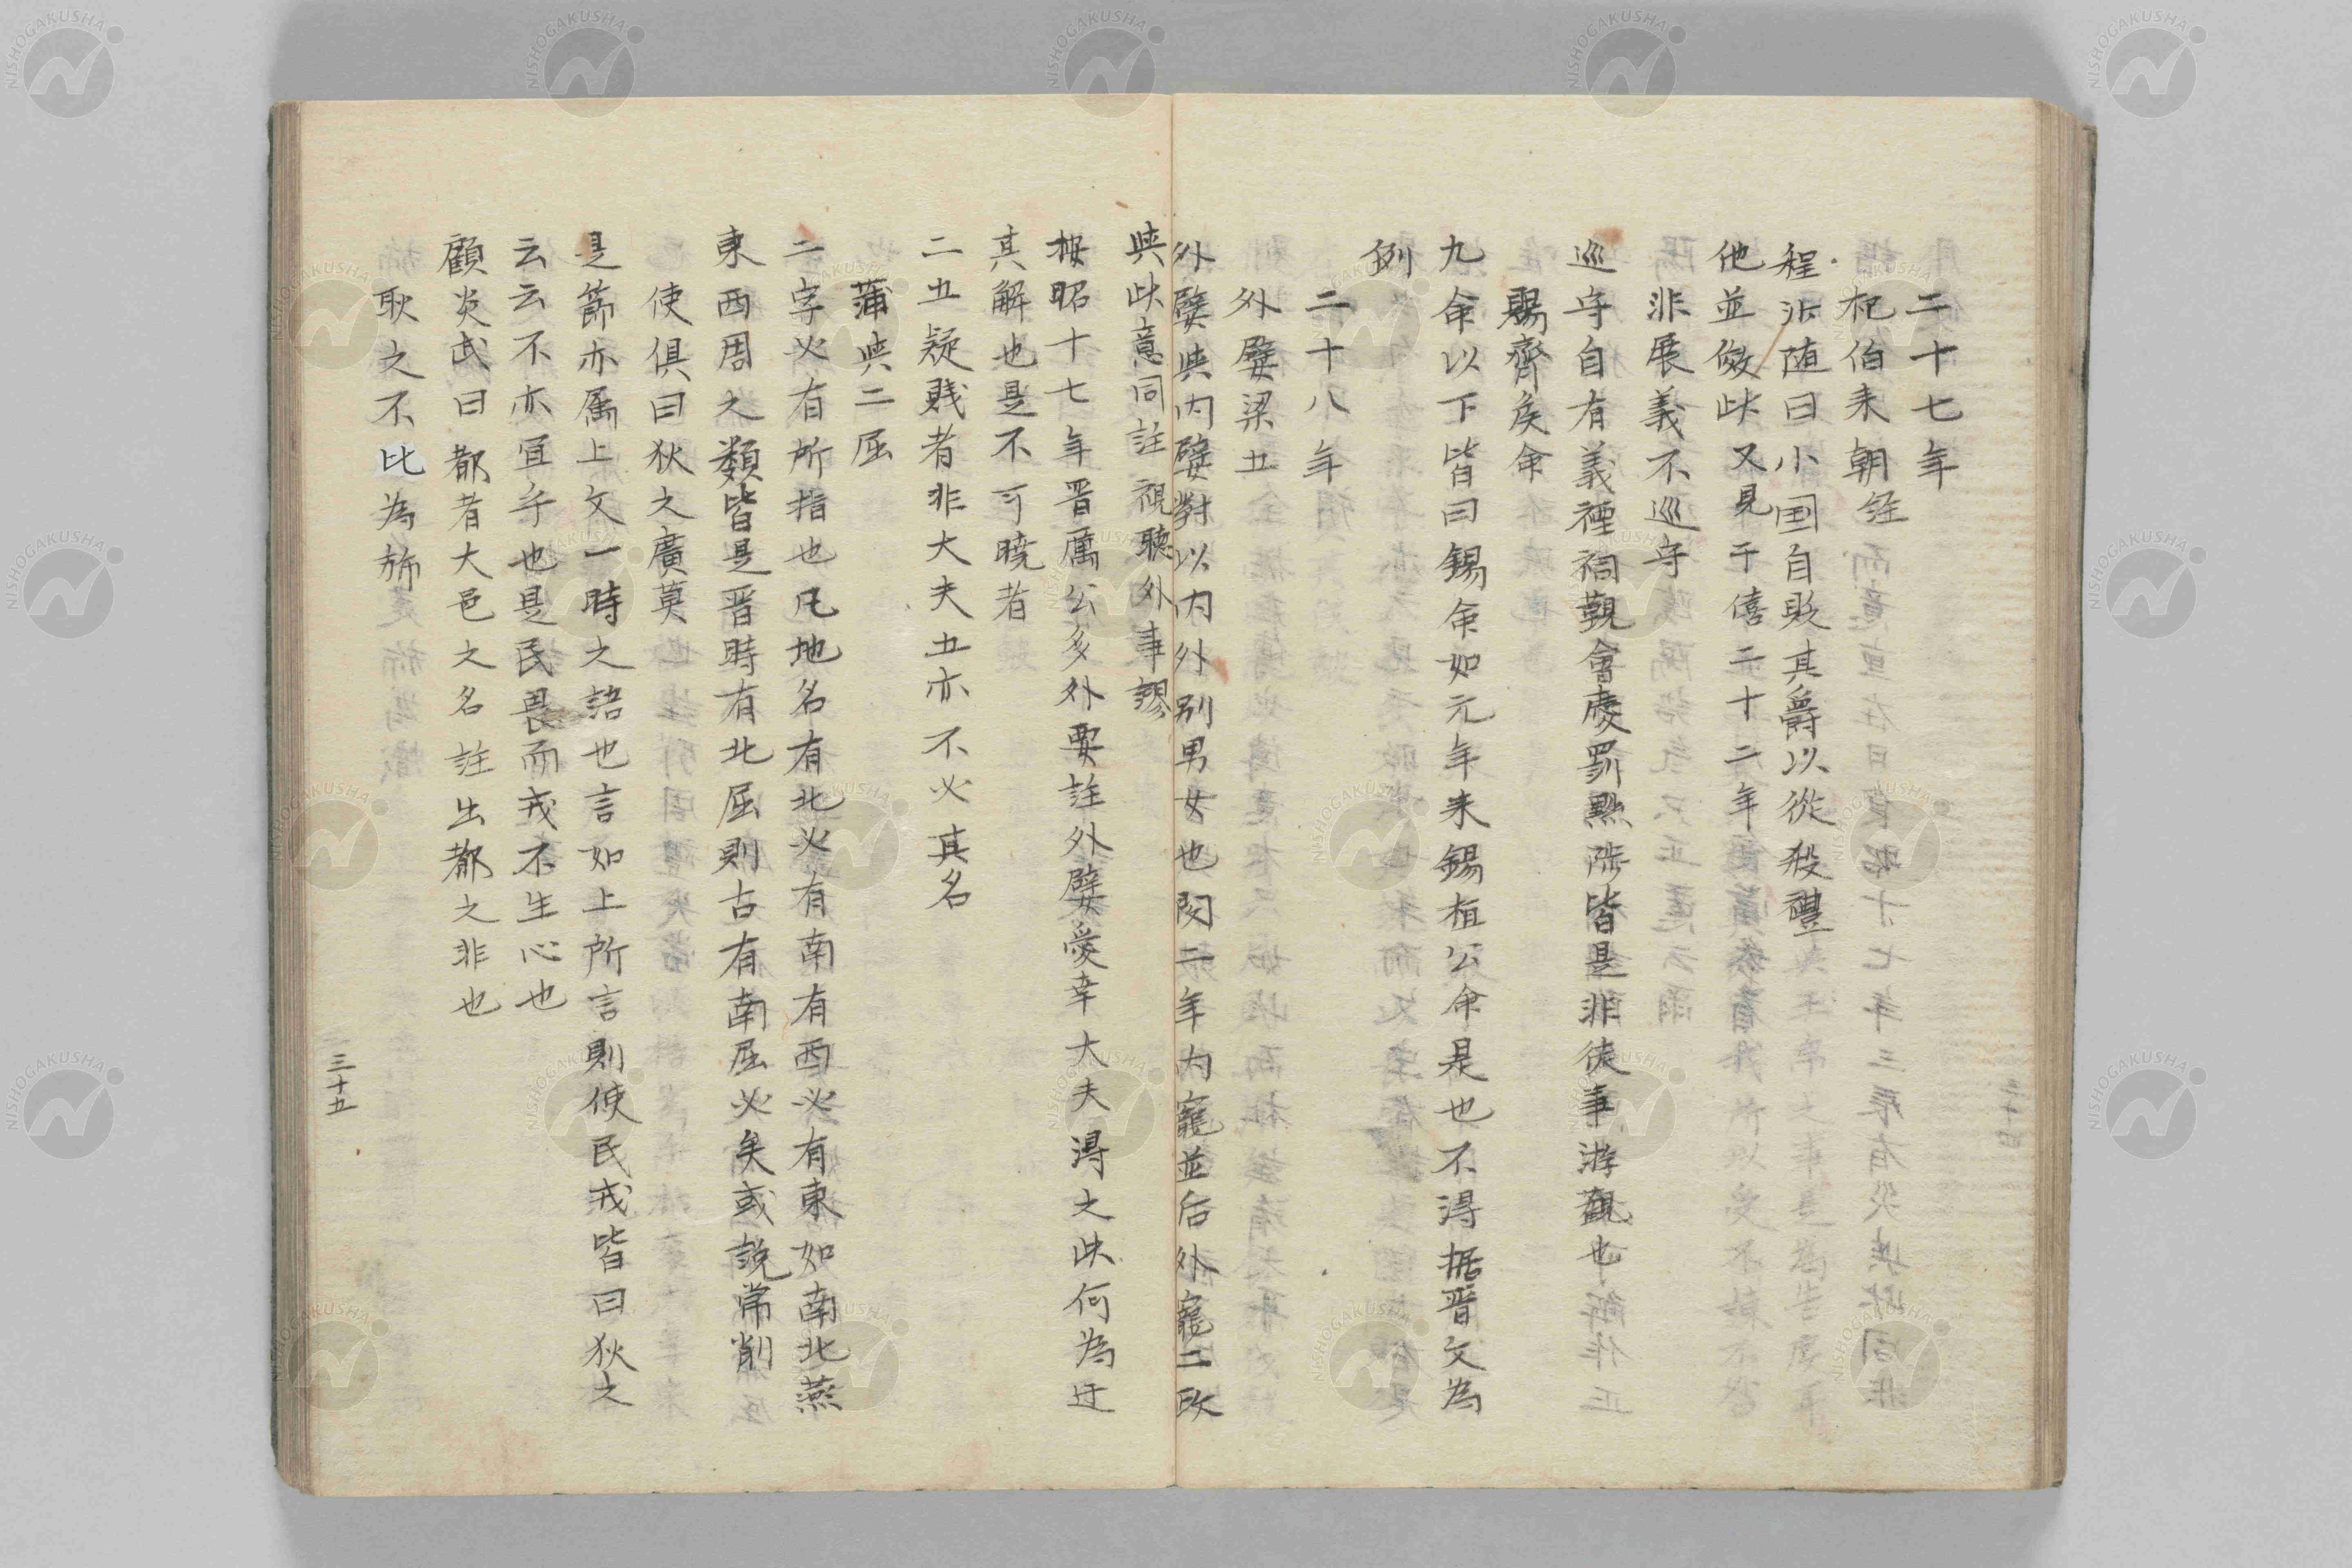 二十七年
杞伯来朝経
程沂随曰小国自貶其爵以従殺禮
他並倣此又見于僖二十二年
非展義不巡守
巡守自有義禋祠覲會慶罰黜陟皆是非徒事游観也
賜齊矦命
九命以下皆曰錫命如元年来錫桓公命是也不得据晋文為
例
二十八年
外嬖梁五
外嬖与内嬖對以内外別男女也閔二年内寵並后外寵二政
与此意同註視聴外事謬
按昭十七年晋厲公多外嬖註外嬖愛幸大夫得之此何為迂
其解也是不可暁者
二五疑賎者非大夫五亦不必其名
蒲与二屈
二字必有所指也凡地名有北必有南有西必有東如南北燕
東西周之類皆是晋時有北屈則古有南屈必矣或説常削
使倶曰狄之廣莫
是節亦属上文一時之語也言如上所言則使民戎皆曰狄之
云云不亦宜乎也是民畏而戎不生心也
顧炎武曰都者大邑之名註出都之非也
耿之不比為旆
三十五